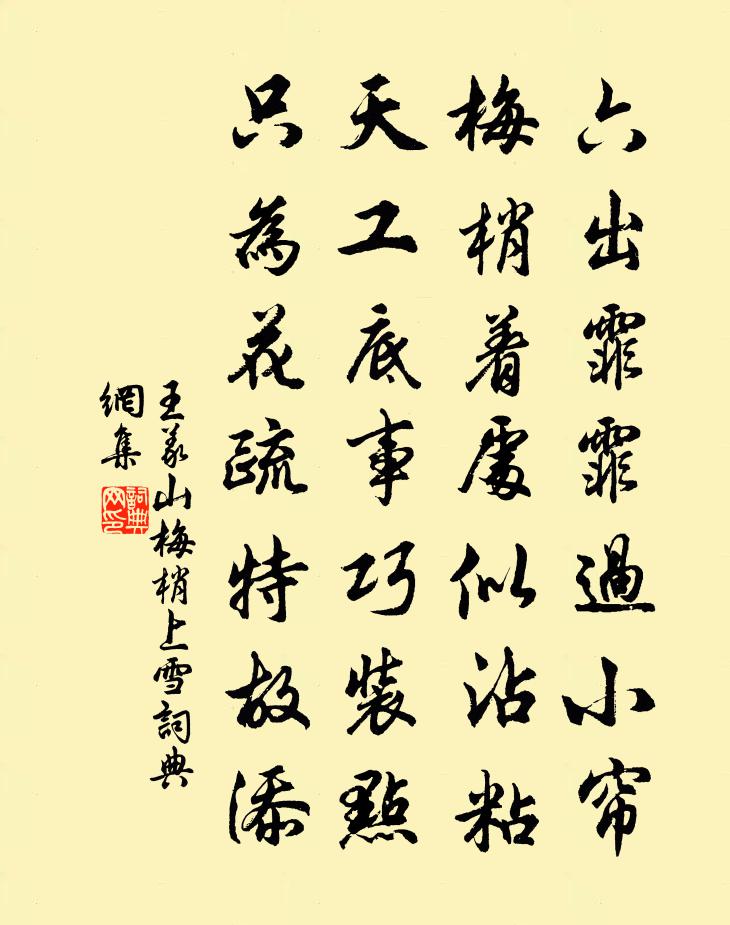 六出霏霏過小帘
梅梢着處似沾粘
天工底事巧裝點
只為花疏特故添
王義山梅梢上雪詞典
網集
詞典網印